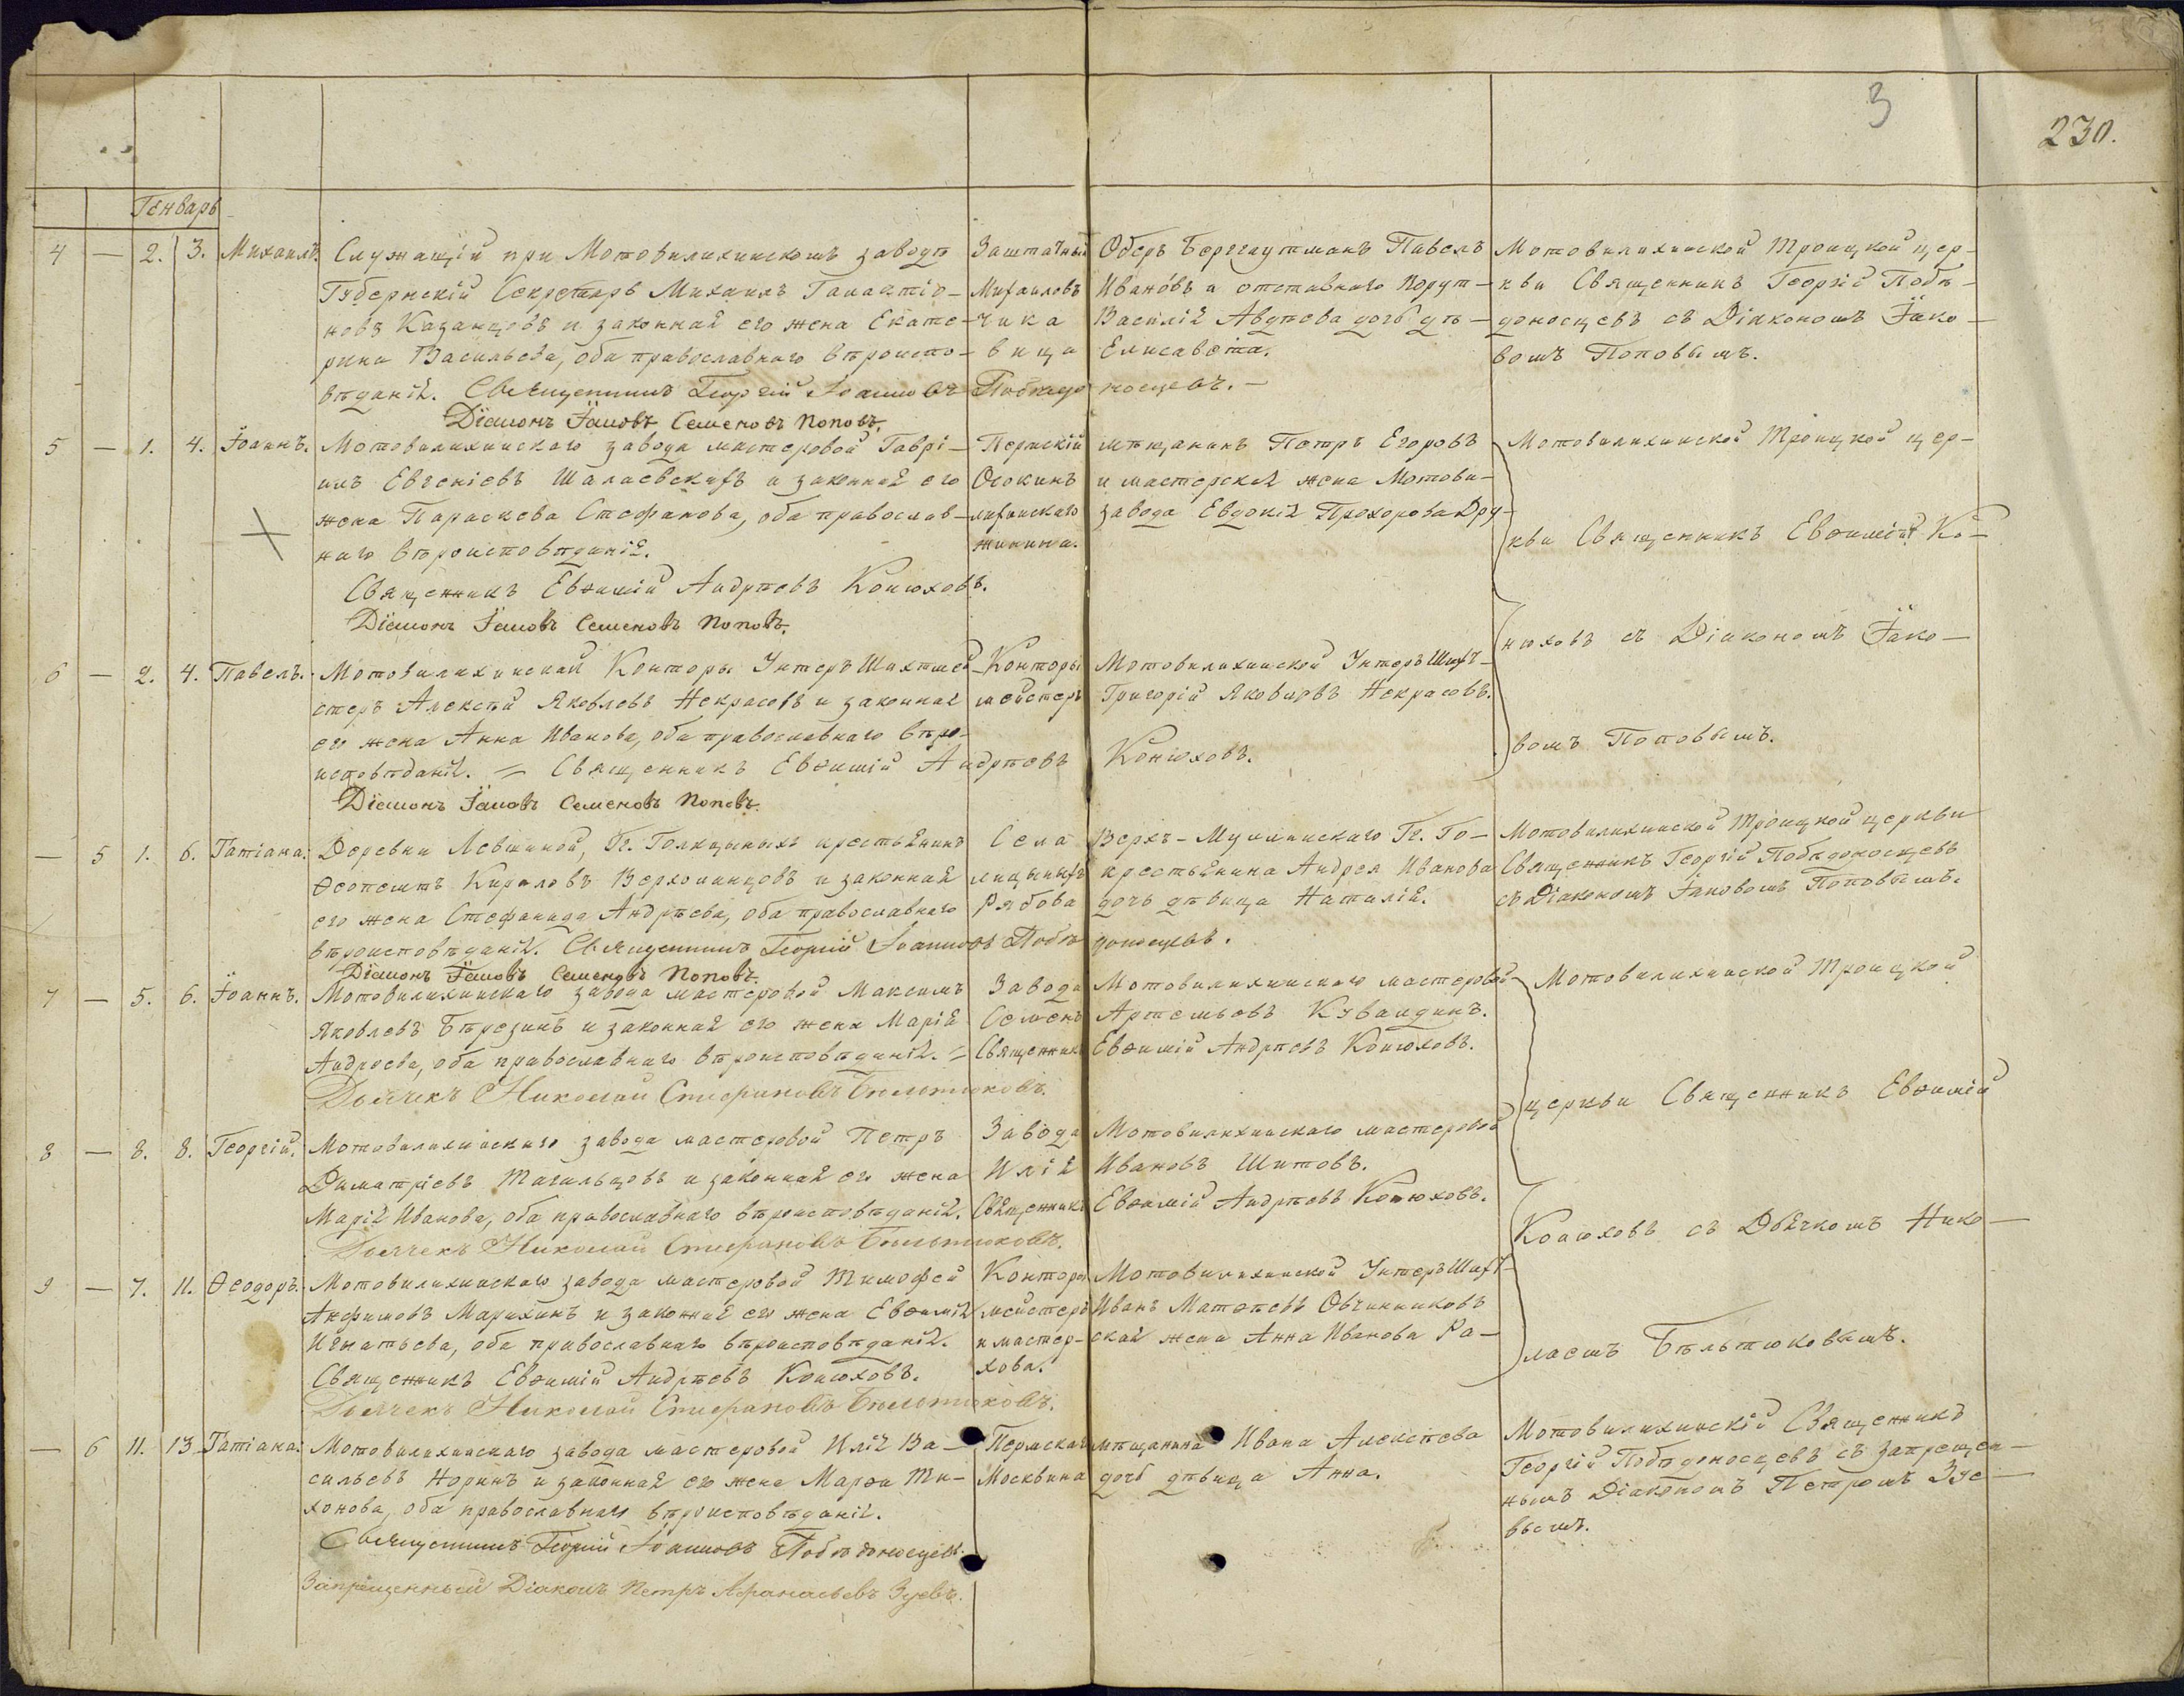 3
230.
Генварь
4 — 2. 3. Михаилъ.
Служащій при Мотовилихинскомъ заводѣ
Губернскій Секретарь Михаилъ
новъ Казанцовъ и законная его жена Екате-
рина Васильева, оба православнаго вѣроиспо-
вѣданія. Священникъ Георгій Іоанновъ Побѣдоносцевъ. —
Діаконъ Іаковъ Семеновъ Поповъ.
Заштатный Оберъ Бергգауптманъ Павелъ
Михаиловъ Ивановъ и отставнаго Порут-
чика Василія Авдѣева дочь дѣ-
вица Елисавета.
Мотовилихинской Троицкой цер-
кви Священникъ Георгій Побѣ-
доносцевъ съ Діакономъ Іако-
вомъ Поповымъ.
5 — 1. 4. Іоаннъ.
Мотовилихинскаго завода мастеровой Гаврі-
илъ Евгеніевъ Шалаевскихъ и законная его
жена Параскева Стефанова, оба православ-
наго вѣроисповѣданія.
Священникъ Евѳимій Андрѣевъ Конюховъ.
Діаконъ Іаковъ Семеновъ Поповъ.
Пермскій мѣщанинъ Петръ Егоровъ
Осокинъ и мастерская жена Мотови-
лихинскаго завода Евдокія Прохорова Дру-
жинина.
Мотовилихинской Троицкой цер-
кви Священникъ Евѳимій Ко-
нюховъ съ Діакономъ Іако-
вомъ Поповымъ.
6 — 2. 4. Павелъ.
Мотовилихинской Конторы Унтеръ Шихтмей-
стеръ Алексѣй Яковлевъ Некрасовъ и законная
его жена Анна Иванова, оба православнаго вѣро-
исповѣданія. = Священникъ Евѳимій Андрѣевъ Конюховъ.
Діаконъ Іаковъ Семеновъ Поповъ.
Конторы Мотовилихинской Унтеръ Шихт-
мейстеръ Григорій Яковлевъ Некрасовъ.
— 5 1. 6. Татіана.
Деревни Левшиной, Гг. Голицыныхъ крестьянинъ
Ѳеопемптъ Кириловъ Верхоланцовъ и законная
его жена Стефанида Андрѣева, оба православнаго
вѣроисповѣданія. Священникъ Георгій Іоанновъ Побѣдоносцевъ.
Діаконъ Іаковъ Семеновъ Поповъ.
Села Верхъ-Муллинскаго Гг. Го-
лицыныхъ крестьянина Андрея Иванова
Рябова дочь дѣвица Наталія.
Мотовилихинской Троицкой церкви
Священникъ Георгій Побѣдоносцевъ
съ Діакономъ Іаковомъ Поповымъ.
7 — 5. 6. Іоаннъ.
Мотовилихинскаго завода мастеровой Максимъ
Яковлевъ Березинъ и законная его жена Марія
Андреева, оба православнаго вѣроисповѣданія. =
Дьячекъ Николай Стефановъ Бѣльтюковъ.
Завода Мотовилихинскаго мастеровой
Семенъ Артемьевъ Кувалдинъ.
Священникъ Евѳимій Андрѣевъ Конюховъ.
Мотовилихинской Троицкой
церкви Священникъ Евѳимій
Конюховъ съ Дьячкомъ Нико-
лаемъ Бѣльтюковымъ.
8 — 8. 8. Георгій.
Мотовилихинскаго завода мастеровой Петръ
Димитріевъ Тагильцовъ и законная его жена
Марія Иванова, оба православнаго вѣроисповѣданія.
Дьячекъ Николай Стефановъ Бѣльтюковъ.
Завода Мотовилихинскаго мастеровой
Илія Ивановъ Шитовъ.
Священникъ Евѳимій Андрѣевъ Конюховъ.
9 — 7. 11. Ѳеодоръ.
Мотовилихинскаго завода мастеровой Тимофей
Анфимовъ Марихинъ и законная его жена Евѳимія
Игнатьева, оба православнаго вѣроисповѣданія.
Священникъ Евѳимій Андрѣевъ Конюховъ.
Дьячекъ Николай Стефановъ Бѣльтюковъ.
Конторы Мотовилихинской Унтеръ Шихт-
мейстеръ Иванъ Матѳѣевъ Овчинниковъ
и мастер-ская жена Анна Иванова Ра-
хова.
— 6 11. 13. Татіана.
Мотовилихинскаго завода мастеровой Илія Ва-
сильевъ Норинъ и законная его жена Марѳа Ти-
хонова, оба православнаго вѣроисповѣданія.
Священникъ Георгій Іоанновъ Побѣдоносцевъ.
Запрещенный Діаконъ Петръ Афанасьевъ Зуевъ.
Пермскаго мѣщанина Ивана Алексѣева
Москвина дочь дѣвица Анна.
Мотовилихинскій Священникъ
Георгій Побѣдоносцевъ съ запрещен-
нымъ Діакономъ Петромъ Зуе-
вымъ.